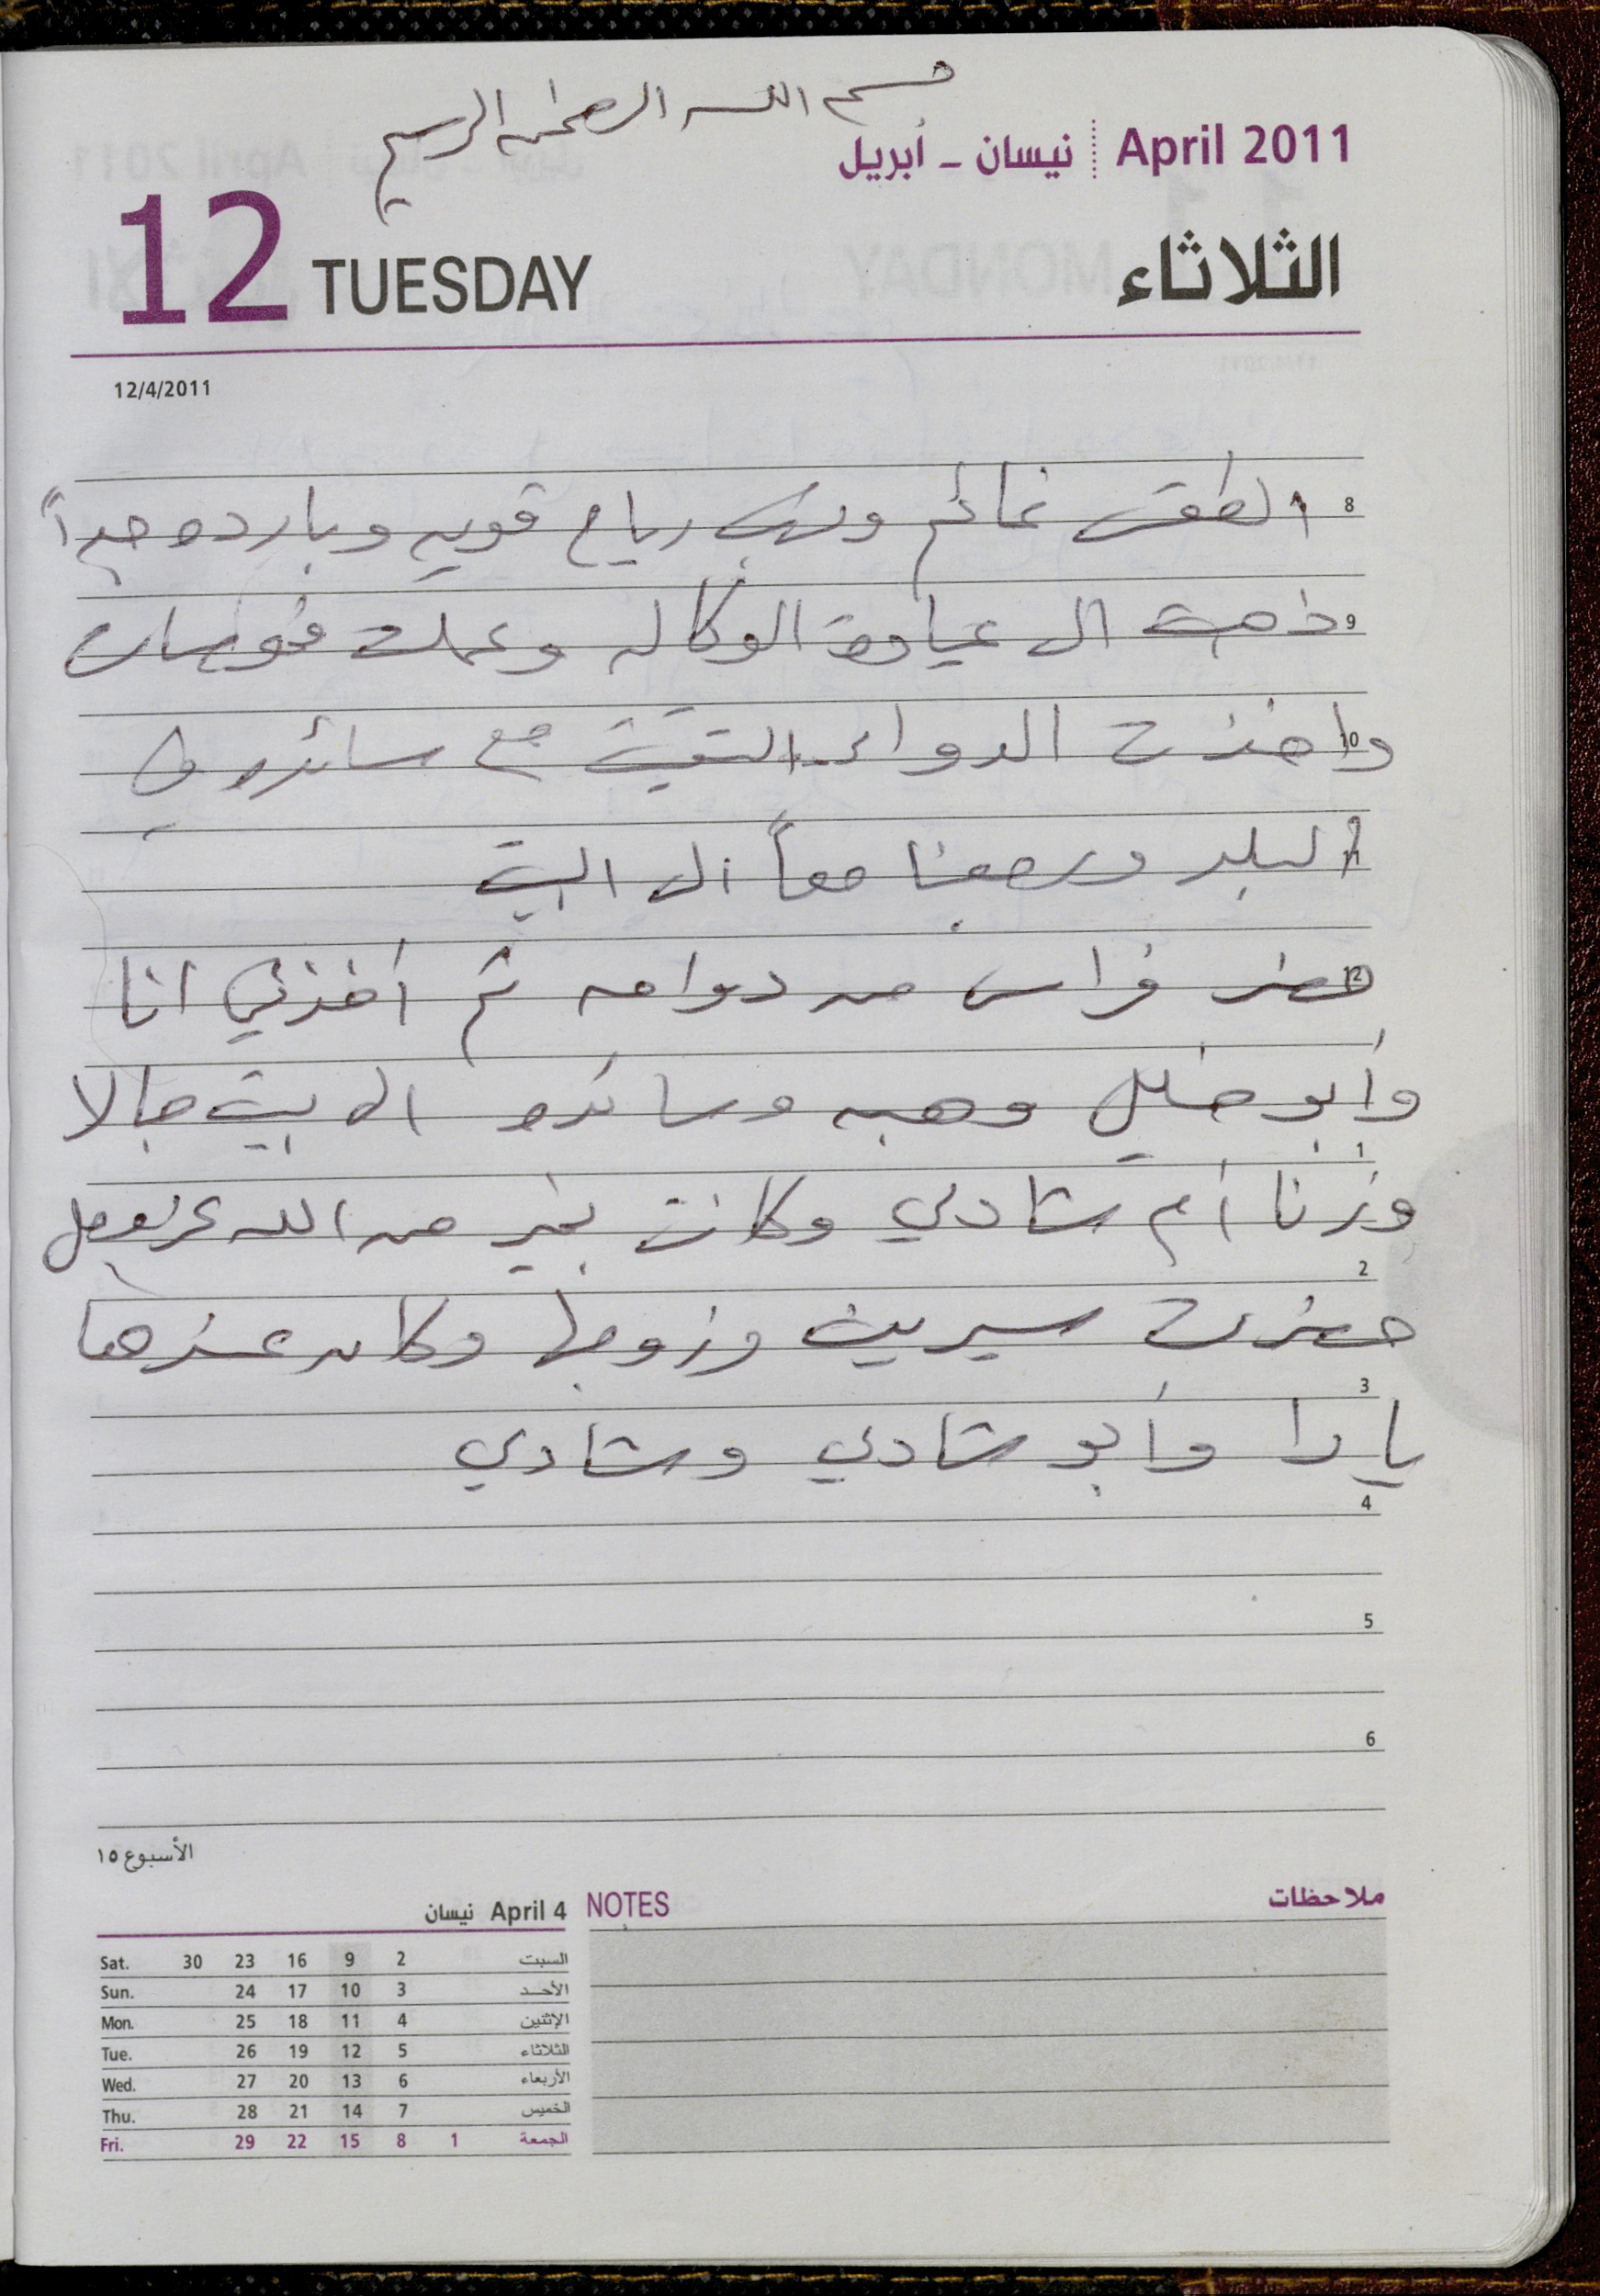 بسم الله الرحمن الرحيم
April 2011 نيسان - أبريل
12 TUESDAY الثلاثاء
12/4/2011
8 الطقس غائم وتهب رياح قويه وبارده جداً
9 ذهبت الى عيادة الوكاله وعملت فحوصات
10 واخذت الدواء. التقيت مع سائده في
11 البلد ورجعنا معاً الى البيت
12 حضر فراس من دوامه ثم أخذني انا
وأبو خليل وهبه وسائده الى بيت جالا
1
وزرنا أم شادي وكانت بخير من الله عز وجل
2
حضرت سيرين وزوجها وكان عندها
3
يارا وأبو شادي وشادي
4
5
6
الأسبوع ١٥
April 4 نيسان
Sat. 30 23 16 9 2 السبت
Sun. 24 17 10 3 الأحد
Mon. 25 18 11 4 الإثنين
Tue. 26 19 12 5 الثلاثاء
Wed. 27 20 13 6 الأربعاء
Thu. 28 21 14 7 الخميس
Fri. 29 22 15 8 1 الجمعة
NOTES ملاحظات